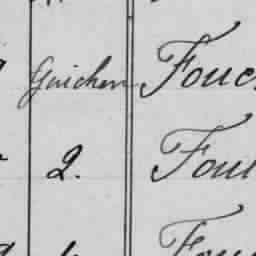 Guichen Fouc
2. Fou
Fou